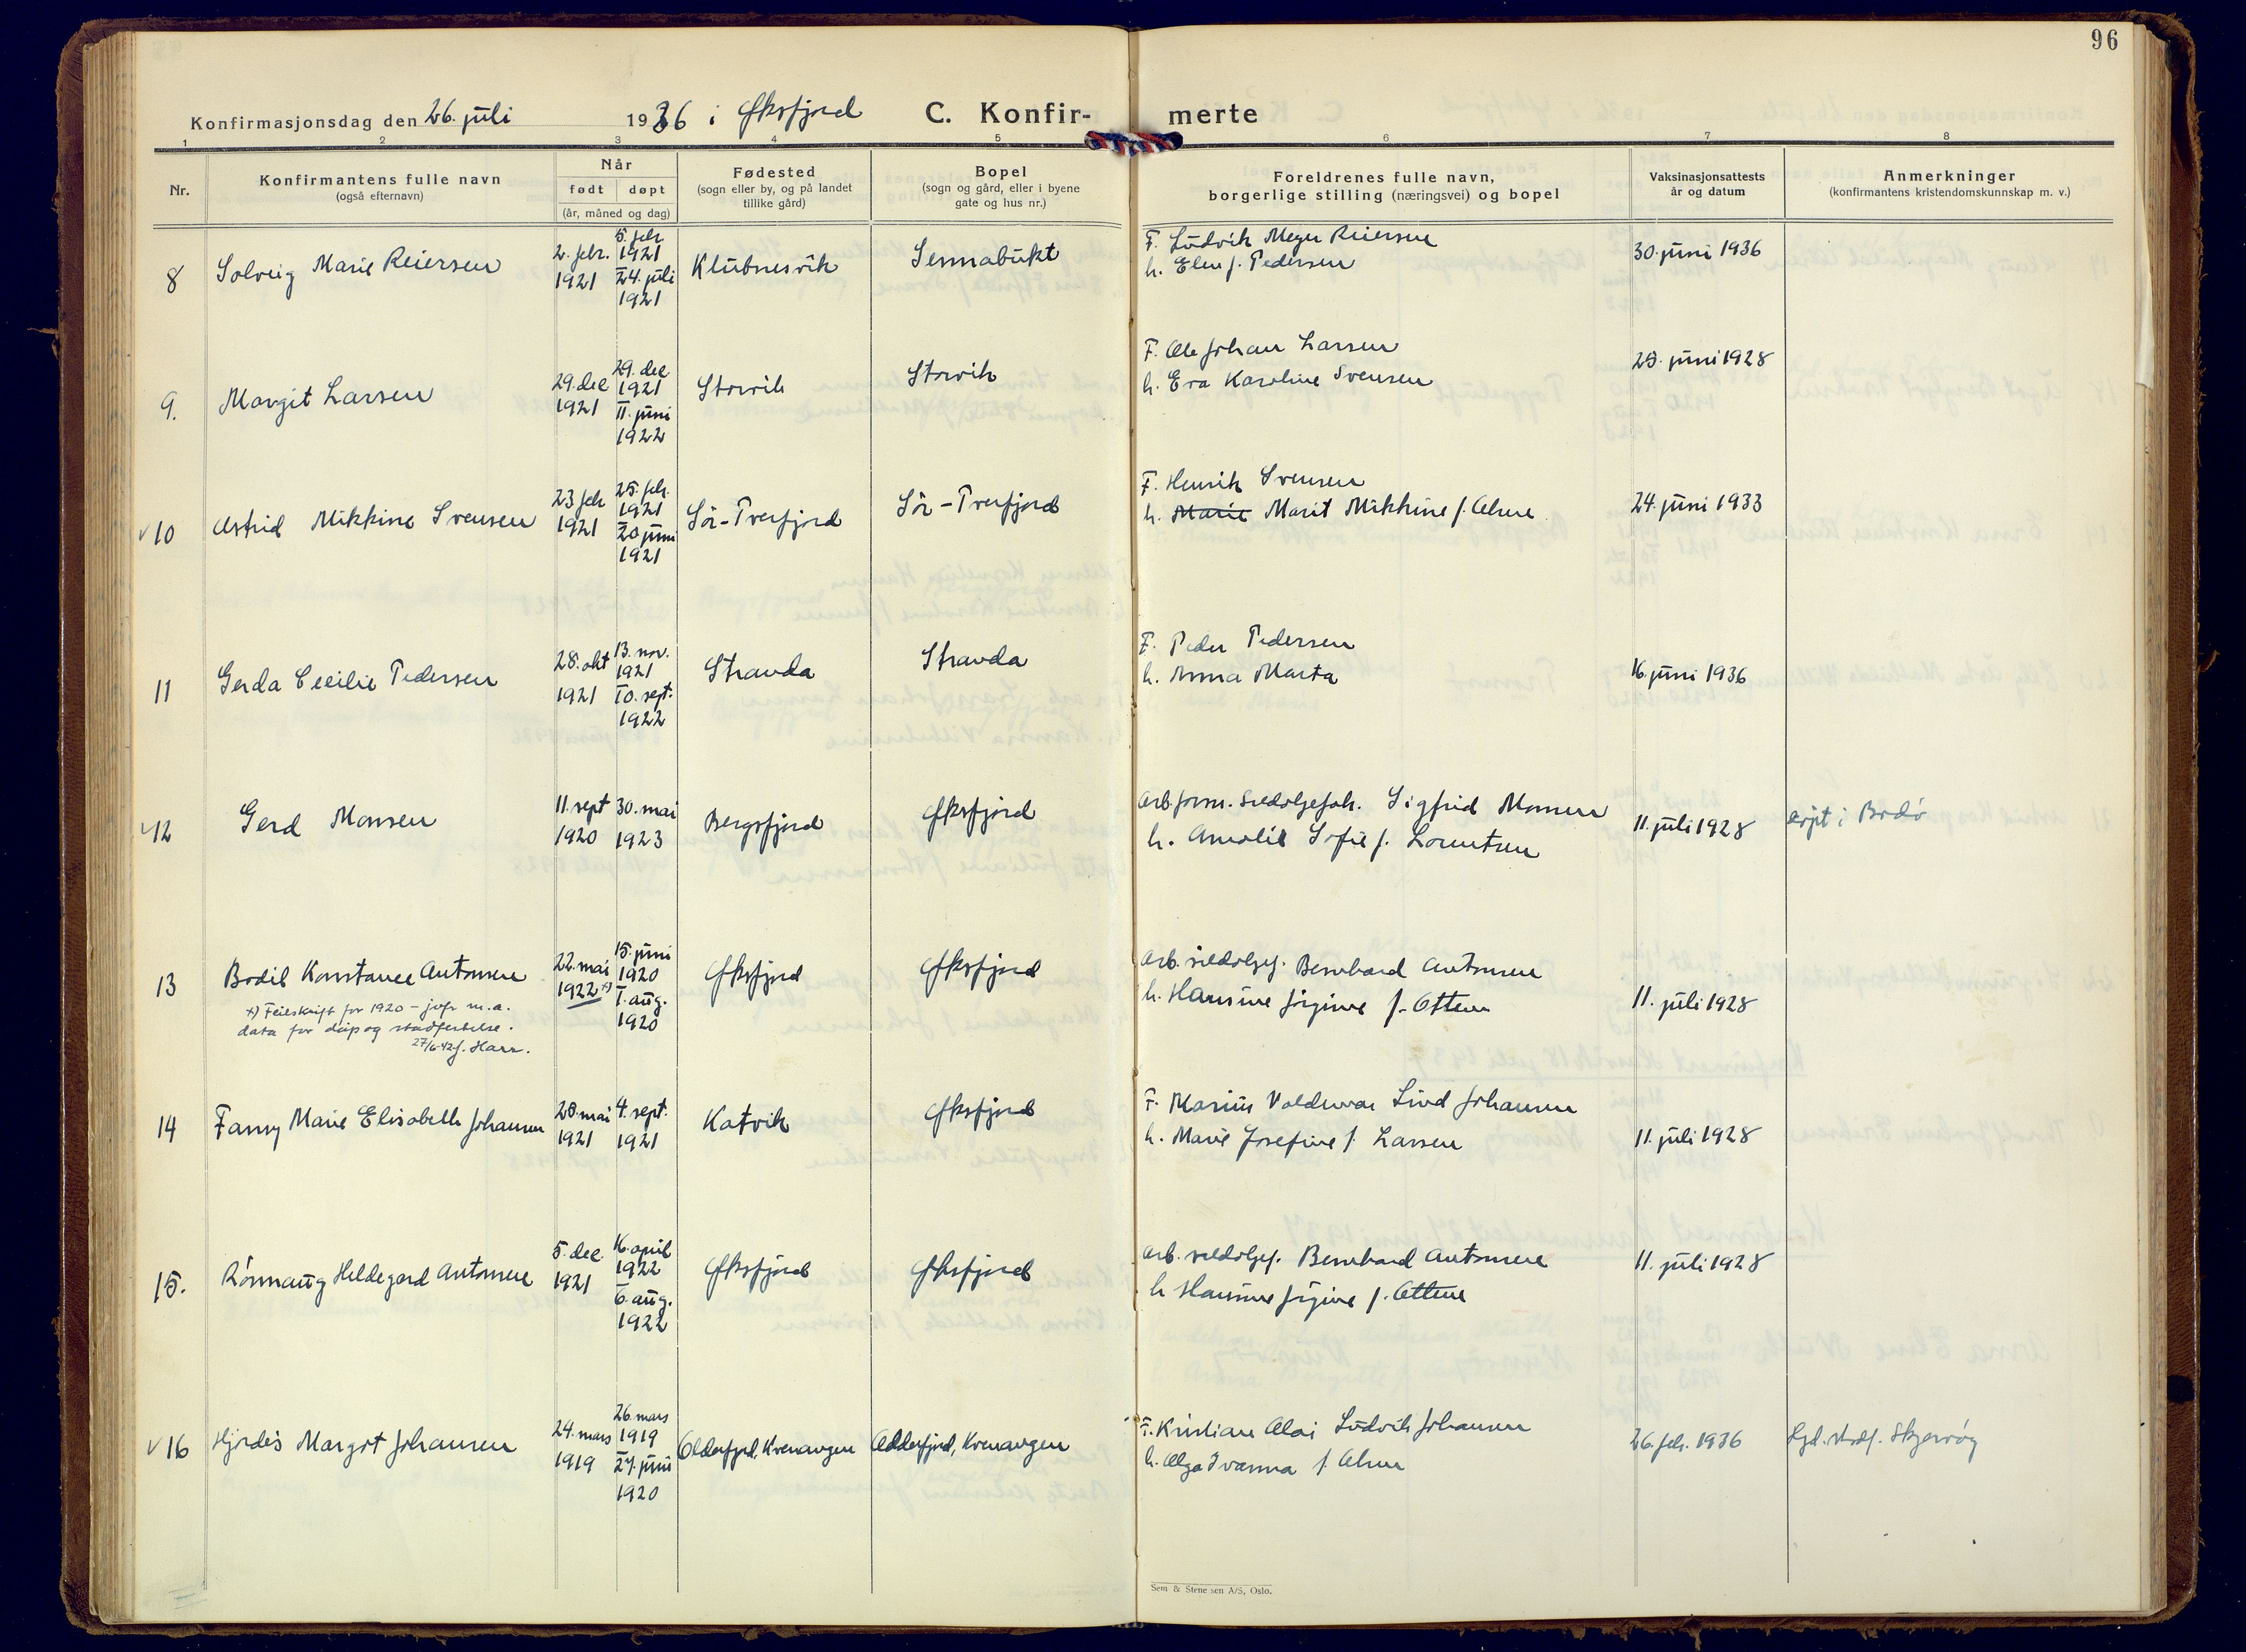 96
Konfirmasjonsdag den 26. juli 1936 i Øksfjord C. Konfir- merte
1 2 3 4 5 6 7 8
Nr.
Konfirmantens fulle navn
(også efternavn)
Når
født døpt
(år, måned og dag)
Fødested
(sogn eller by, og på landet
tillike gård)
Bopel
(sogn og gård, eller i byene
gate og hus nr.)
Foreldrenes fulle navn,
borgerlige stilling (næringsvei) og bopel
Vaksinasjonsattests
år og datum
Anmerkninger
(konfirmantens kristendomskunnskap m. v.)
8 Solveig Marie Reiersen
2. febr.
1921
5. febr
1921
24. juli
1921
Klubnesvik
Sennabukt
F. Ludvik Meyer Reiersen
h. Elen f. Pedersen
30. juni 1936
9. Margit Larsen
29. dec
1921
29. dec
1921
11. juni
1922
Storvik
Storvik
F. Ole Johan Larsen
h. Eva Karoline Svensen
juni 1928
10 Astrid Mikkine Svensen
23 feb
1921
25. feb.
1921
20 juni
1921
Sör-Tverfjord
Sör-Tverfjord
F. Henrik Svensen
h. Marie Marit Mikkine f. Olsen
24. juni 1933
11 Gerda Cecilie Pedersen
28. okt
1921
13. nov.
1921
10. sept.
1922
Stranda
Stranda
F. Peder Pedersen
h. Anna Marta
16. juni 1936
12 Gerd Monsen
11. sept
1920
30. mai
1923
Bergsfjord
Øksfjord
Arb.form. Sildoljefab. Sigfrid Monsen
h. Amalie Sofie f. Lorentsen
11. juli 1928
døpt i Bodø
13 Bodil Konstance Antonsen
x) Feilskrift for 1920 - jvfr m.a.
data for dåp og stadfestelse.
27/6-42 J. Harr.
22. mai
1922 x)
15. juni
1920
1. aug.
1920
Øksfjord
Øksfjord
Arb. sildoljef. Bernhard Antonsen
h. Hansine Jørgine f. Ottem
11. juli 1928
14 Fanny Marie Elisabeth Johansen
28. mai
1921
4. sept.
1921
Katvik
Øksfjord
F. Marius Valdemar Lind Johansen
h. Marie Josefine f. Larsen
11. juli 1928
15. Rönnaug Hildegard Antonsen
5. dec.
1921
16. april
1922
6. aug.
1922
Øksfjord
Øksfjord
Arb. sildoljef. Bernhard Antonsen
h Hansine Jörgine f. Ottem
11. juli 1928
16 Hjördis Margot Johansen
24. mars
1919
26. mars
1919
27. juni
1920
Olderfjord, Kvenangen
Olderfjord, Kvenangen
F. Kristian Olai Ludvik Johansen
h. Olga Ivanna f. Olsen
26. feb. 1936
Skjervøy
Sem & Stenersen A/S, Oslo.